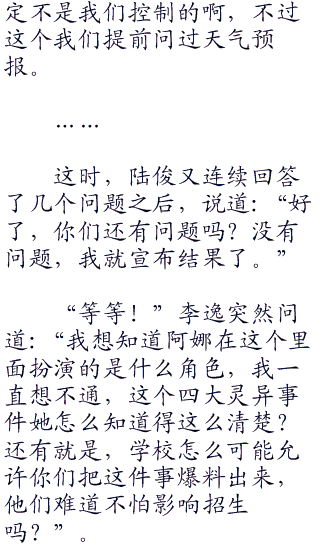 定不是我们控制的啊，不过
这个我们提前问过天气预
报。
……
这时，陆俊又连续回答
了几个问题之后，说道：“好
了，你们还有问题吗？没有
问题，我就宣布结果了。”
“等等！”李逸突然问
道：“我想知道阿娜在这个里
面扮演的是什么角色，我一
直想不通，这个四大灵异事
件她怎么知道得这么清楚？
还有就是，学校怎么可能允
许你们把这件事爆料出来，
他们难道不怕影响招生
吗？”。